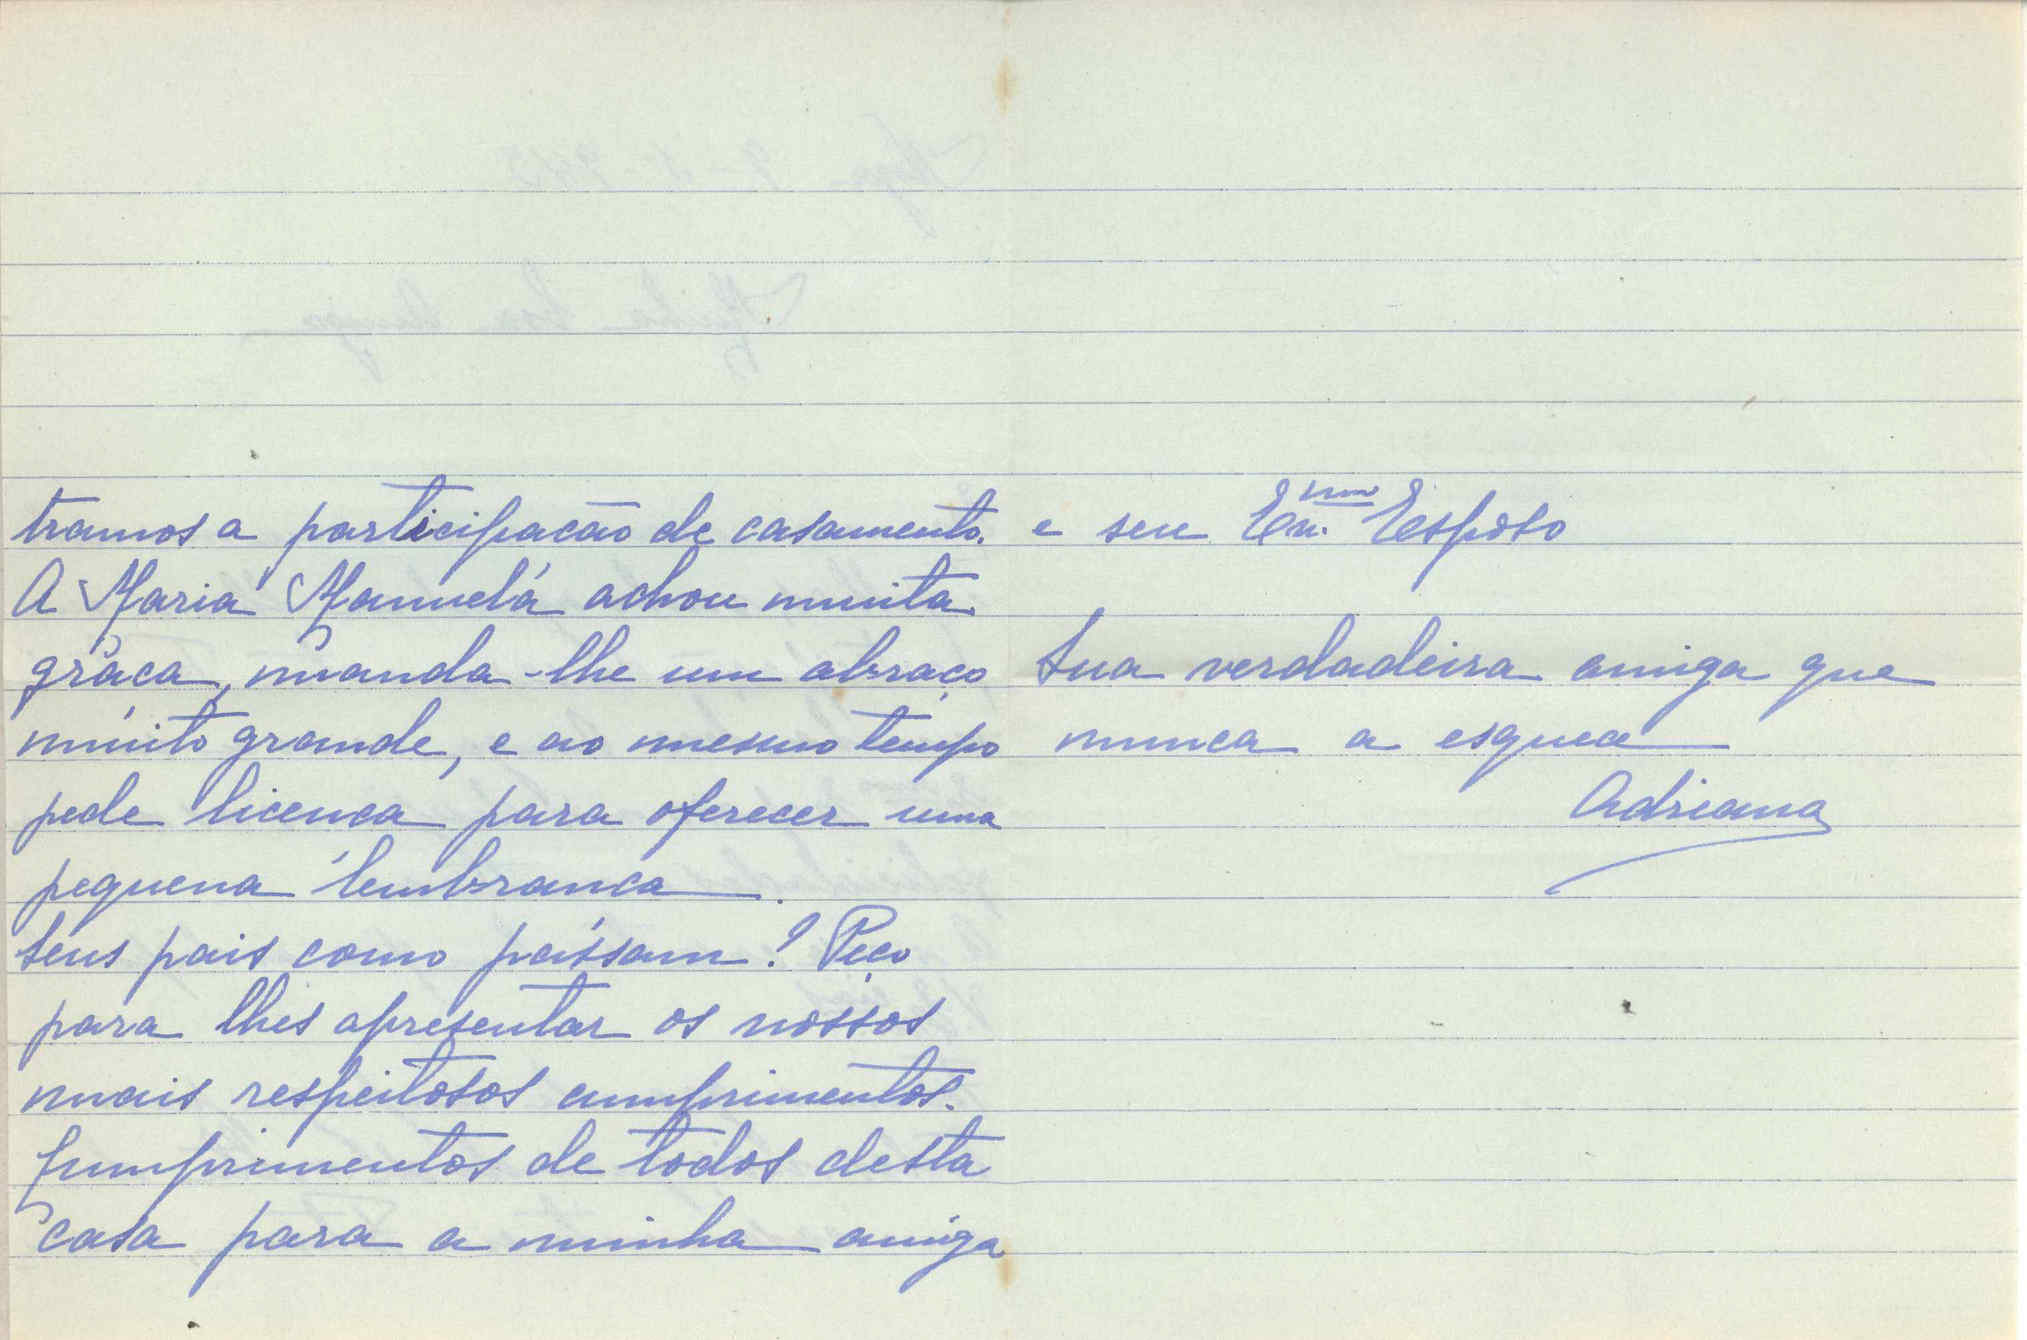 tramos a participacão de casamento.
A Maria Manuela achou muita
graca, manda-lhe um abraço
muito grande, e ao mesmo tempo
pede licenca para oferecer uma
pequena lembranca.
Seus pais como passam? Peço
para lhes apresentar os nossos
mais respeitosos cumprimentos.
Cumprimentos de todos desta
casa para a minha amiga
e seu Ex.mo Esposo
Sua verdadeira amiga que
nunca a esquece
Adriana